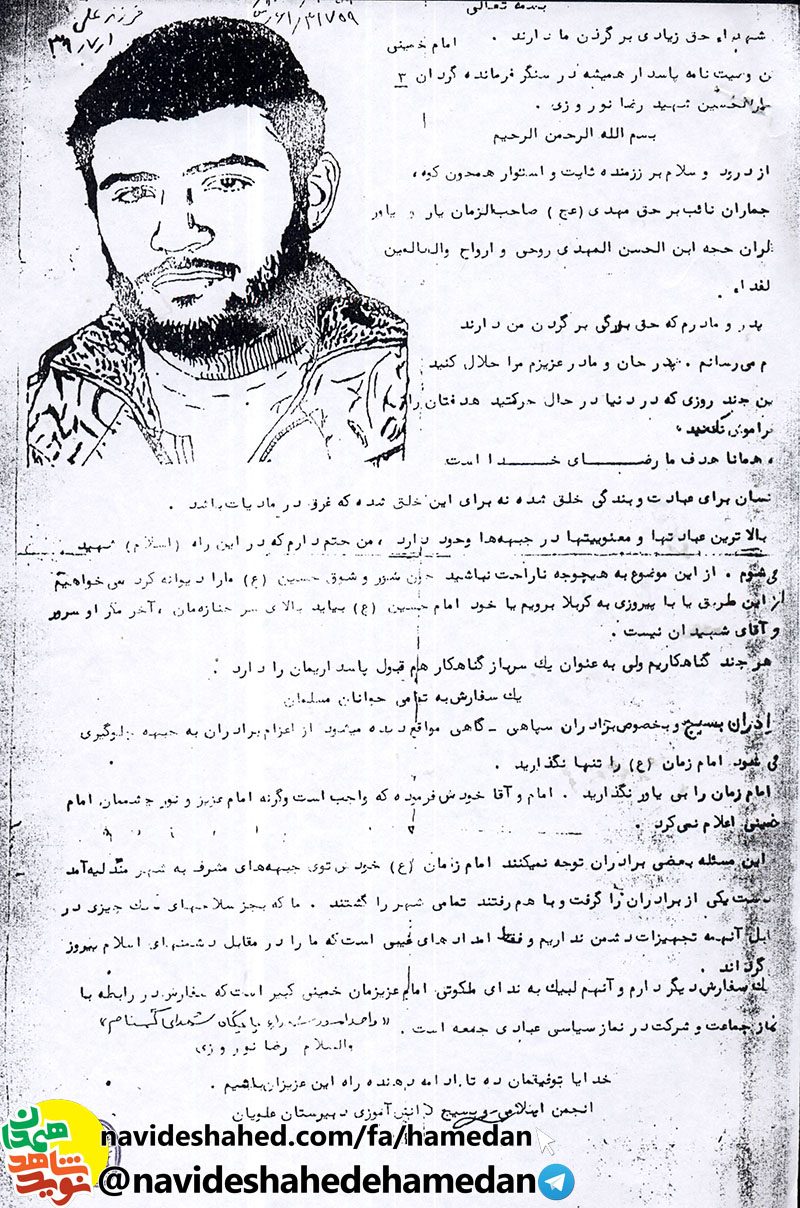 بسمه تعالی
فرزند علی
۳۹/۷/۱
شهداء حق زیادی بر گردن ما دارند . امام خمینی
ن وصیت نامه پاسدار همیشه در سنگر فرمانده گردان ۳
شهید رضا نوروزی .
بسم الله الرحمن الرحیم
از درود و سلام بر رزمنده ثابت و استوار همچون کوه ،
جماران نائب بر حق مهدی (عج ) صاحب الزمان یار و یاور
حجه ابن الحسن المهدی روحی و ارواح والعالمین
لفداه .
پدر و مادرم که حق بزرگی بر گردن من دارند
م می‌رسانم . پدر جان و مادر عزیزم مرا حلال کنید
ین چند روزی که در دنیا در حال حرکتید هدفتان را
فراموش نکنید .
، همانا هدف ما رضای خدا است
نسان برای عبادت و بندگی خلق شده نه برای این خلق شده که غرق در مادیات باشد .
بالاترین عبادتها و معنویتها در جبهه‌ها وجود دارد ، من حتم دارم که در این راه (اسلام) شهید
می شوم . از این موضوع به هیچوجه ناراحت نباشید چون شور و شوق حسین (ع) مارا دیوانه کرد می‌خواهیم
از این طریق یا با پیروزی به کربلا برویم یا خود امام حسین (ع) بیاید بالای سر جنازه‌مان ، آخر مگر او سرور
و آقای شهیدان نیست .
هر چند گناهکاریم ولی به عنوان یك سرباز گناهکار هم قبول پاسداریمان را دارد .
یك سفارش به تمامی جوانان مسلمان
ادران بسیج و بخصوص برادران سپاهی - گاهی مواقع دیده میشود از اعزام برادران به جبهه جلوگیری
می شود امام زمان (ع) را تنها نگذارید .
امام زمان را بی یاور نگذارید . امام و آقا خودش فرموده که واجب است وگرنه امام عزیز و نور چشممان امام
خمینی اعلام نمی‌کرد .
این مسئله بعضی برادران توجه نمیکنند امام زمان (ع) خودش توی جبهه‌های مشرف به شهر مندلیه آمد
دست یکی از برادران را گرفت و با هم رفتند تمامی شهر را گشتند . ما که بجز سلاحهای سبك چیزی در
ابل آنهمه تجهیزات دشمن نداریم و فقط امدادهای غیبی است که ما را در مقابل دشمنهای اسلام پیروز
گرداند .
یك سفارش دیگر دارم و آنهم لبیك به ندای ملکوتی امام عزیزمان خمینی کبیر است که سفارش در رابطه با
نماز جماعت و شرکت در نماز سیاسی عبادی جمعه است .
والسلام رضا نوروزی
خدایا توفیقمان ده تا ادامه دهنده راه این عزیزان باشیم .
انجمن اسلامی و بسیج دانش‌آموزی دبیرستان علویان
نوید شاهد همدان
navideshahed.com/fa/hamedan
@navideshahedehamedan